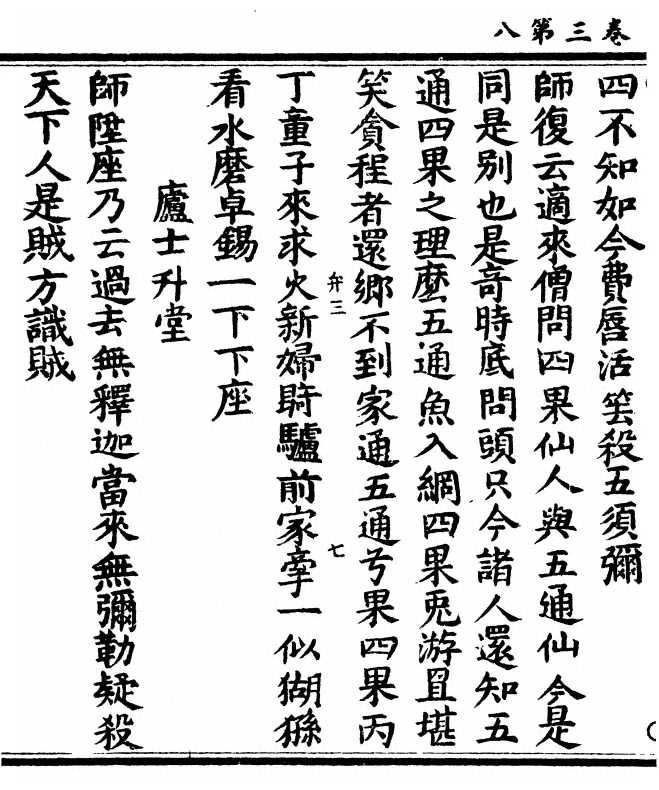 卷三第八
四不知如今費唇活笑殺五須彌
師復云適來僧問四果仙人與五通仙今是
同是别也是竒時底問頭只今諸人還知五
通四果之理麽五通魚入網四果兎游罝堪
笑貪程者還鄉不到家通五通兮果四果丙
弁三
七
丁童子來求火新婦騎驢前家牽一似猢猻
看水磨卓錫一下下座
廬士升堂
師陞座乃云過去無釋迦當來無彌勒疑殺
天下人是賊方識賊